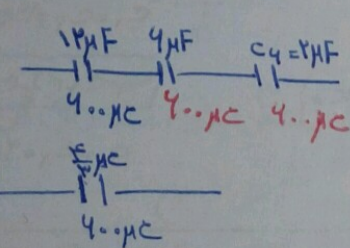 ۱۲μF ۶μF C۶=۲μF
۶۰۰μC ۶۰۰μC ۶۰۰μC
۴/۳ μC
۶۰۰μC